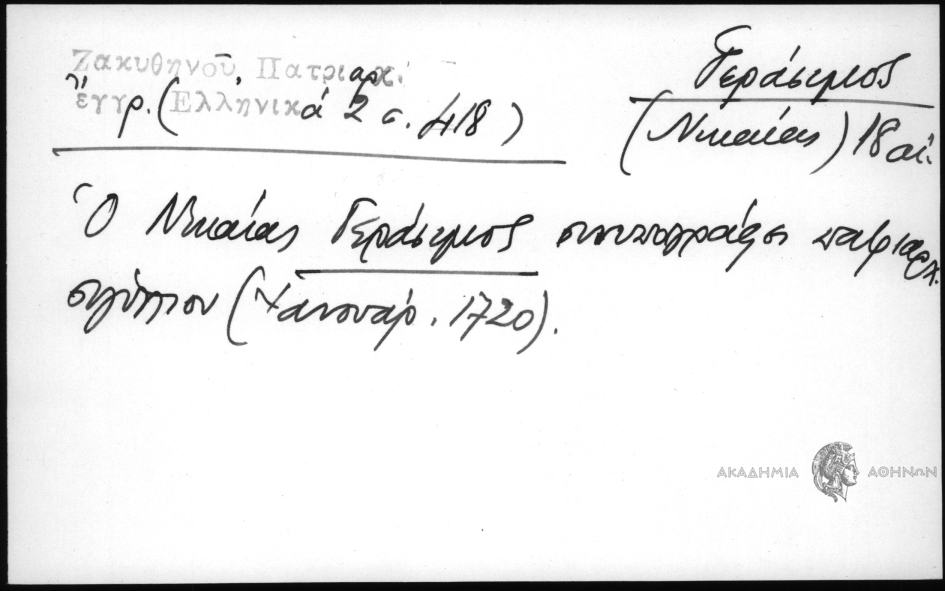 Ζακυθηνοῦ, Πατριαρχ.
ἔγγρ. (Ἑλληνικά 2 σ. 418)
Γεράσιμος
(Νικαίας) 18 αἰ.
Ὁ Νικαίας Γεράσιμος συνυπογράφει πατριαρχ.
σιγίλλιον (Ἰανουάρ. 1720).
ΑΚΑΔΗΜΙΑ ΑΘΗΝΩΝ